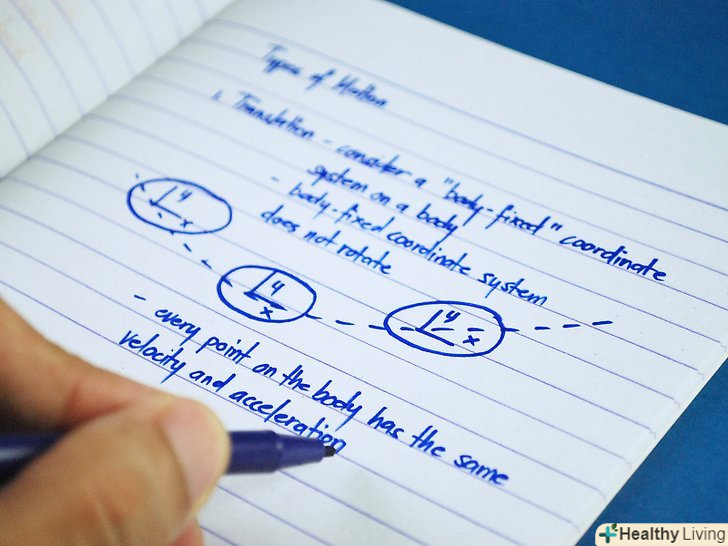 Types of Motion
1. Translation - consider a "body-fixed" coordinate
system on a body
- body-fixed coordinate system
does not rotate
y
x
y
x
y
x
- every point on the body has the same
velocity and acceleration
Healthy Living